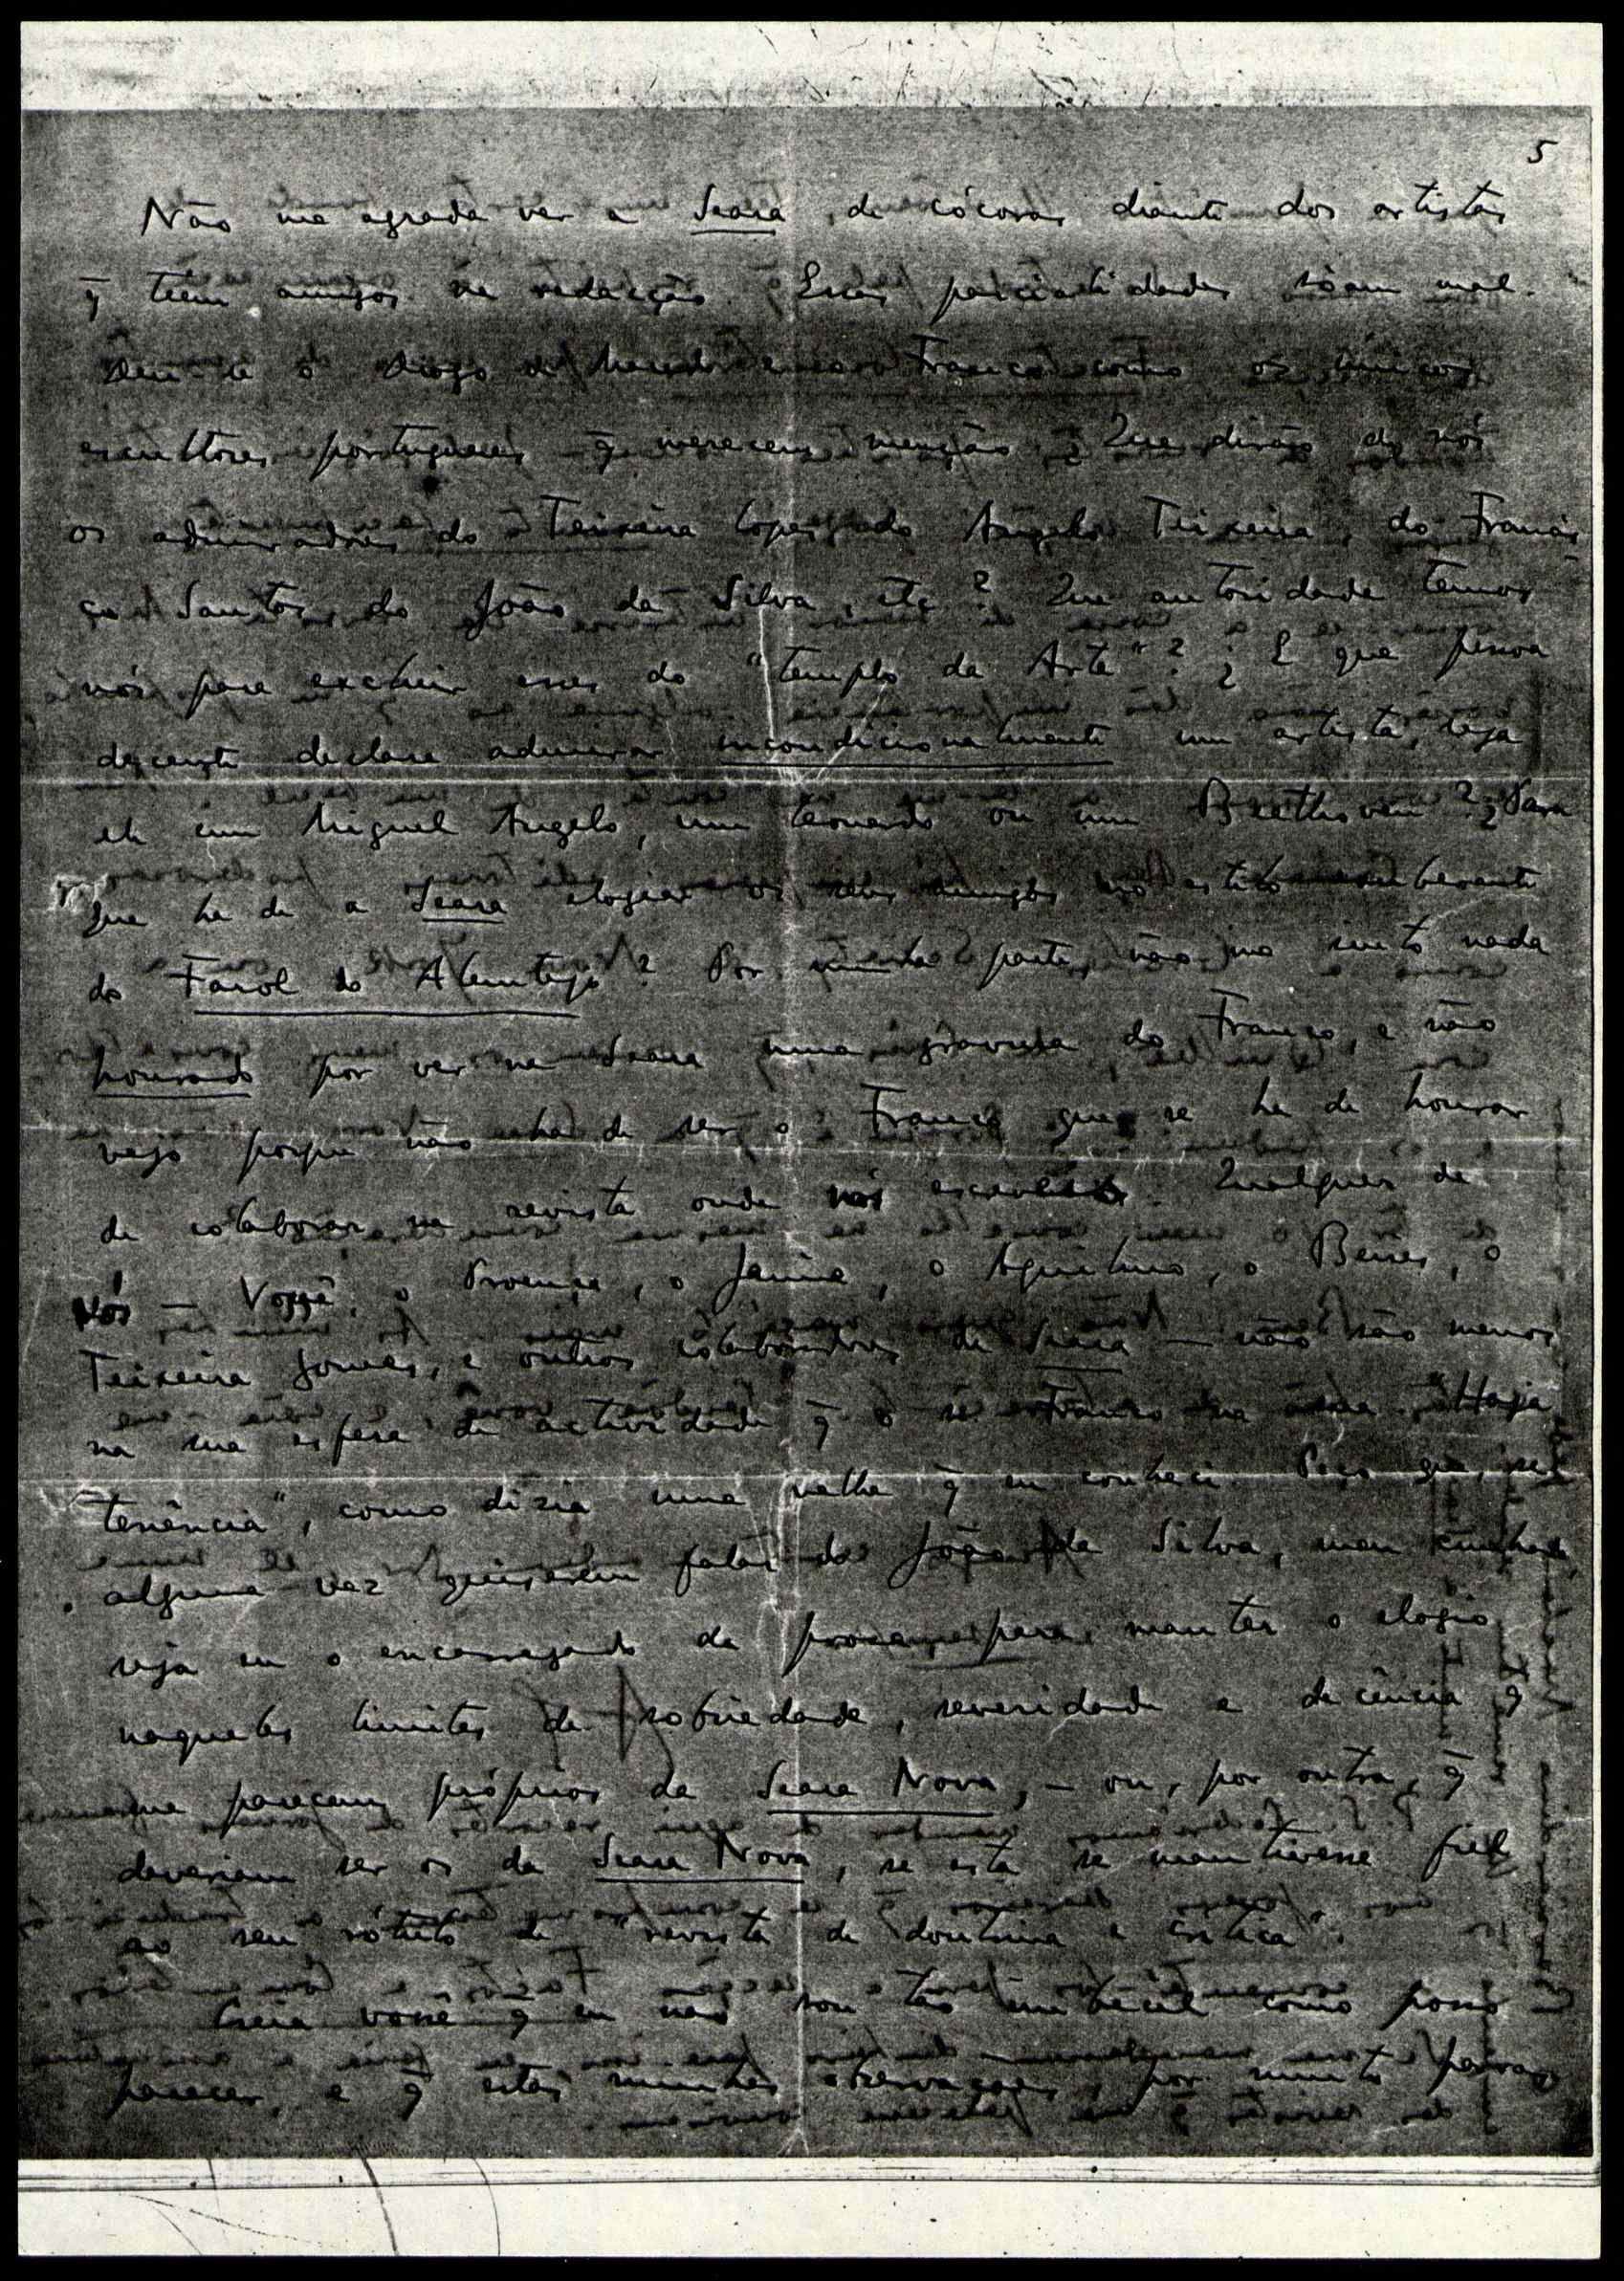 5
Não me agrada ver a Seara de cócoras diante dos artistas
q̄ teem amigos na redacção. Essas parcialidades sôam mal.
o Diogo de Macedo e o Franco como os únicos
escultores portugueses q̄ merecem menção. ¿ Que dirão de nós
os admiradores do Teixeira Lopes, do Angelo Teixeira, do Francis-
co Santos, do João da Silva, etc? Que autoridade temos
nós para excluir esses do "templo da Arte"? ¿ E que pessoa
decente declara admirar incondicionalmente um artista, seja
ele um Miguel Angelo, um Leonardo ou um Beethoven? ¿ Para
que ha de a Seara elogiar os seus amigos no estilo exuberante
do Farol do Alemtejo? Por minha parte, não me sinto nada
honrado por ver na Seara uma gravura do Franco, e não
vejo porque não ha de ser o Franco que se ha de honrar
de colaborar na revista onde nós escrevemos. Qualquer de
Nós — Você, o Proença, o Jaime, o Aquilino, o Beires, o
Teixeira Gomes, e outros colaboradores da Seara — não são menos
na sua esfera de actividade q̄ o Franco na "Haja
tenência", como dizia uma velha q̄ eu conheci. Peço que, se
alguma vez quiserem falar do João da Silva, meu cunhado,
seja eu o encarregado da prosa, para manter o elogio
naqueles limites de sobriedade, severidade e decência q̄
que pareçam próprios da Seara Nova, — ou, por outra, q̄
deveriam ser os da Seara Nova, se esta se mantivesse fiel
ao seu rótulo de "revista de doutrina e crítica".
Creia você q̄ eu não sou tão imbecil como posso
parecer, e q̄ estas minhas observações, por muito